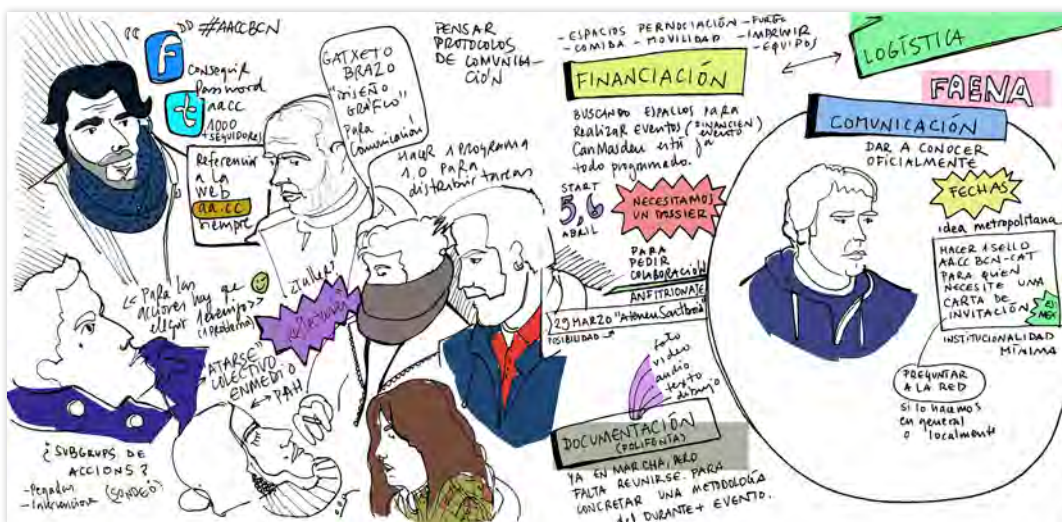 “ ” #AACCBCN
f
t
CONSEGUIR
password
aacc
1000
+ SEGUIDORES
Referencia
a la
web
aa.cc
siempre
GATXETO
BRAZO
"DISEÑO
GRÁFICO"
Para
Comunicación
PENSAR
PROTOCOLOS
DE COMUNICA-
CIÓN
HACER 1 PROGRAMA
1.0 PARA
distribuir tareas
<< Para las
acciones hay que
elegir 1 tiempo >>
(1 problema)
"ATARSE"
COLECTIVO
ENMEDIO
PAH
¿SUBGRUPS DE
ACCIONS?
- Pegadas
(SONDEO)
- ESPACIOS PERNOCTACIÓN - FURGO
- COMIDA - MOVILIDAD - IMPRIMIR
- EQUIPOS
LOGÍSTICA
FINANCIACIÓN
BUSCANDO ESPACIOS PARA
Realizar EVENTOS (FINANCIEN)
evento
CanMasdeu está ya
todo programado.
START
5,6
ABRIL
NECESITAMOS
UN DOSSIER
PARA
PEDIR
COLABORACIÓN
ANFITRIONAJE
29 MARZO "Ateneu
POSIBILIDAD
foto
video
audio
texto
dibujo
DOCUMENTACIÓN
(POLIFONÍA)
YA EN MARCHA, PERO
FALTA REUNIRSE PARA
CONCRETAR UNA METODOLOGÍA
del DURANTE + EVENTO.
FAENA
COMUNICACIÓN
DAR A CONOCER
OFICIALMENTE
FECHAS
idea metropolitana
HACER 1 SELLO
AACC BCN-CAT
PARA QUIEN
NECESITE UNA
CARTA DE
INVITACIÓN
INSTITUCIONALIDAD
MÍNIMA
PREGUNTAR
A LA RED
si lo hacemos
en general
o localmente